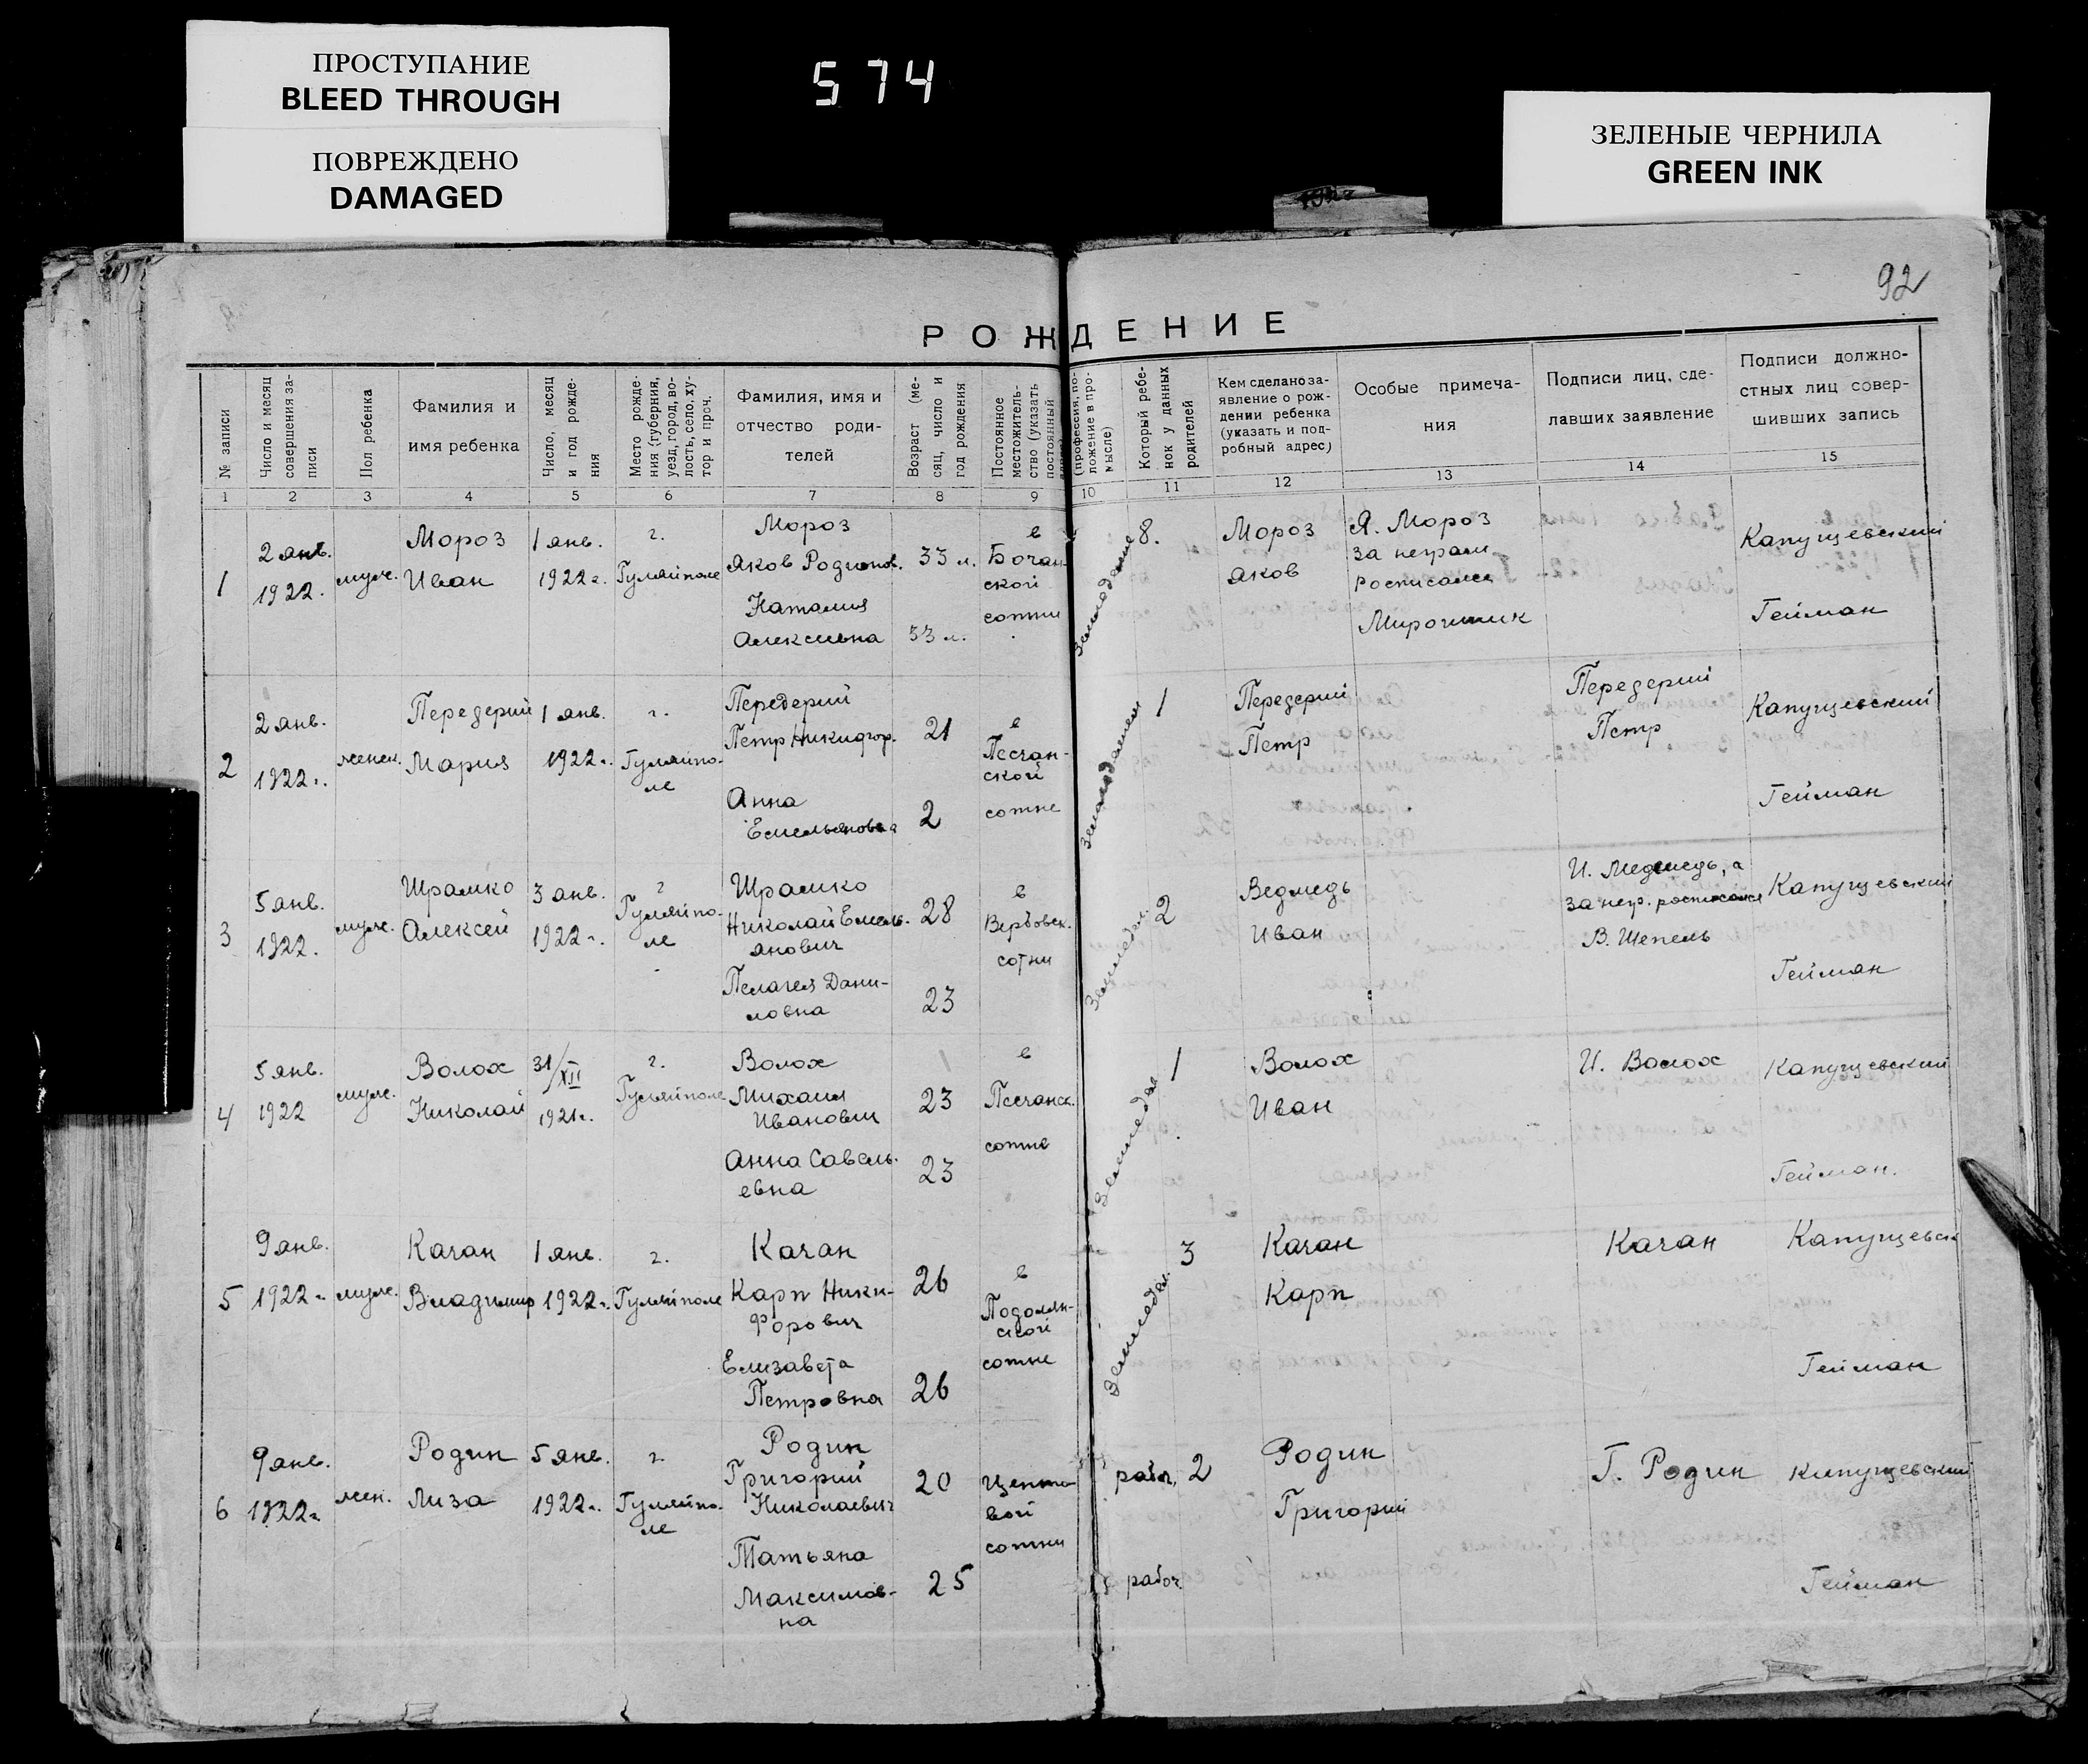 ПРОСТУПАНИЕ
BLEED THROUGH
ПОВРЕЖДЕНО
DAMAGED
574
ЗЕЛЕНЫЕ ЧЕРНИЛА
GREEN INK
92
РОЖДЕНИЕ
№ записи
Число и месяц
совершения за-
писи
Пол ребенка
Фамилия и
имя ребенка
Число, месяц
и год рожде-
ния
Место рожде-
ния (губерния,
уезд, город, во-
лость, село, ху-
тор и проч.
Фамилия, имя и
отчество роди-
телей
Возраст (ме-
сяц, число и
год рождения
Постоянное
местожитель-
ство (указать
постоянный
(профессия, по-
ложение в про-
мысле)
Который ребе-
нок у данных
родителей
Кем сделано за-
явление о рож-
дении ребенка
(указать и под-
робный адрес)
Особые примеча-
ния
Подписи лиц, сде-
лавших заявление
Подписи должно-
стных лиц совер-
шивших запись
1 2 3 4 5 6 7 8 9 10 11 12 13 14 15
1
2 янв.
1922.
муж.
Мороз
Иван
1 янв.
1922 г.
г.
Гуляйполе
Мороз
Яков Родионов.
33 л.
Наталия
Алексиевна
33 л.
в
Бочан-
ской
сотни
Земледелие
8.
Мороз
Яков
Я. Мороз
за неграм
росписался
Мирошник
Капущевский
Гейман
2
2 янв.
1922 г.
женск.
Передерий
Мария
1 янв.
1922 г.
г.
Гуляйпо-
ле
Передерий
Петр Никифор.
21
Анна
Емельяновна
2
в
Песчан-
ской
сотне
1
Передерий
Петр
Передерий
Петр
Капущевский
Гейман
3
5 янв.
1922.
муж.
Шрамко
Алексей
3 янв.
1922 г.
г
Гуляйпо-
ле
Шрамко
Николай Емель-
янович
28
Пелагея Дани-
ловна
23
в
Вербовск.
сотни
Земледел.
2
Ведмедь
Иван
И. Медведь, а
за негр. росписался
В. Шепель
Капущевский
Гейман
4
5 янв.
1922
муж.
Волох
Николай
31/XII
1921 г.
г.
Гуляйполе
Волох
Михаил
Иванович
23
Анна Савель-
евна
23
в
Песчанск.
сотне
Земледел
1
Волох
Иван
И. Волох
Капущевский
Гейман.
5
9 янв.
1922 г.
муж.
Качан
Владимир
1 янв.
1922 г.
г.
Гуляйполе
Качан
Карп Ники-
форович
26
Елизавета
Петровна
26
в
Подолян-
ской
сотне
Земледел.
3
Качан
Карп
Качан
Капущевск
Гейман
6
9 янв.
1922 г
жен.
Родин
Лиза
5 янв.
1922 г.
г.
Гуляйпо-
ле
Родин
Григорий
Николаевич
20
Татьяна
Максимов-
на
25
сотни
рабоч.
рабоч.
2
Родин
Григорий
Г. Родин
Капущевский
Гейман